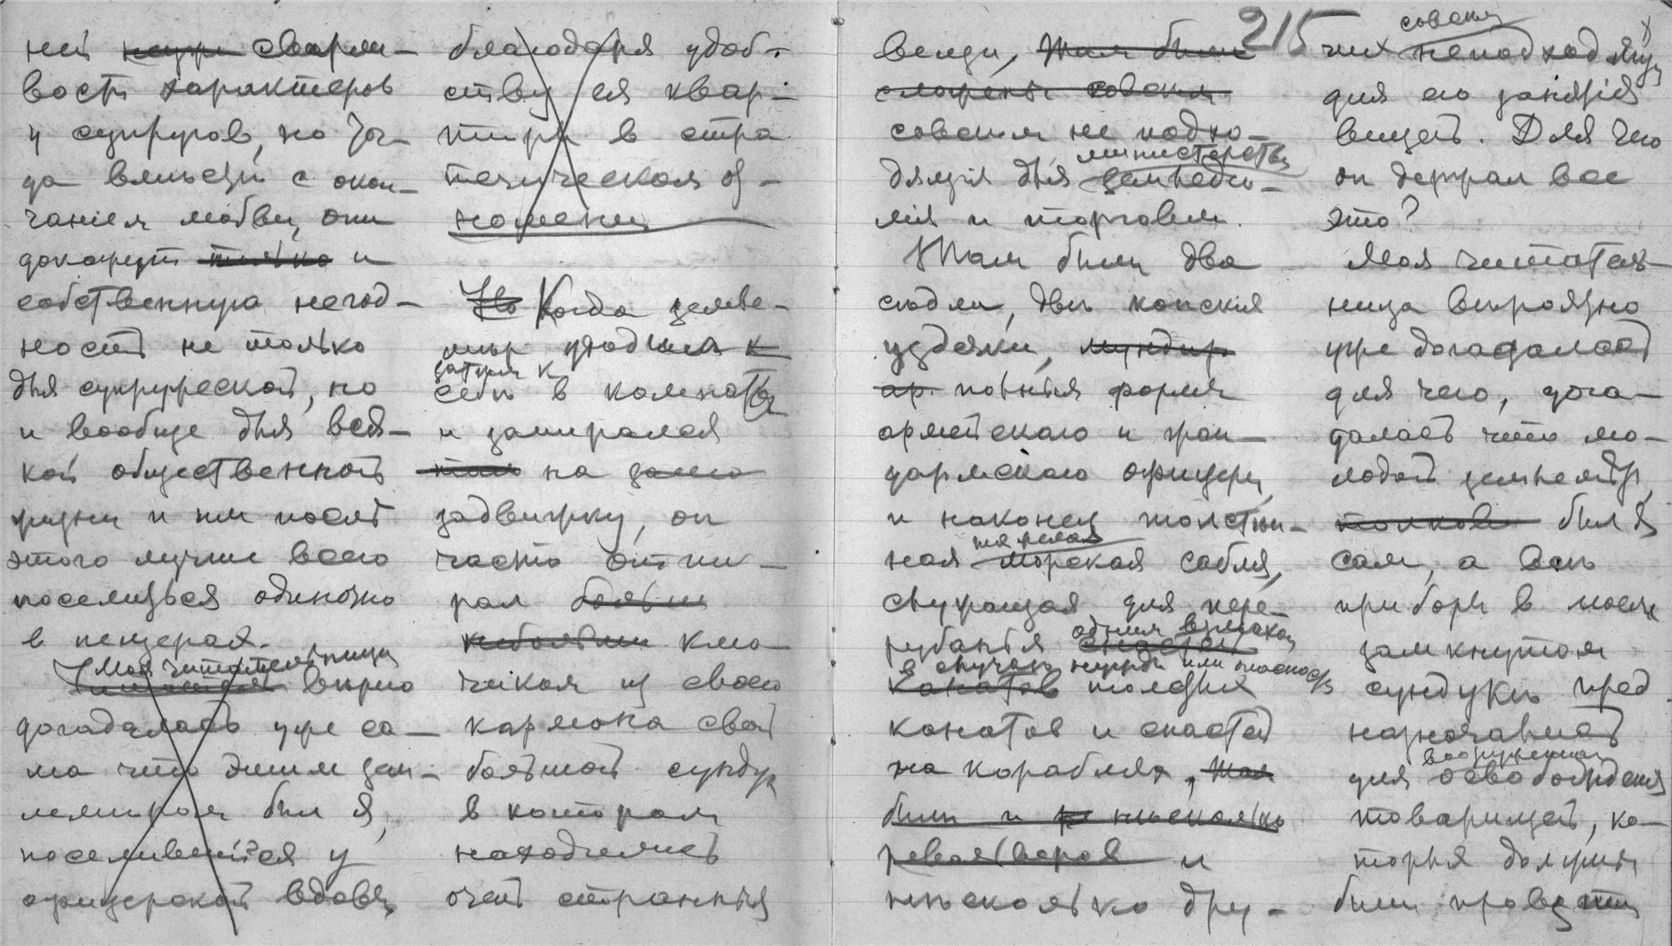 ней сварли-
вость характеров
у супругов, но ког-
да вместе с окон-
чанием любви, они
докажут и
собственную негод-
ность не только
для супружеской, но
и вообще для вся-
кой общественной
жизни и им после
этого лучше всего
поселиться одиноко
в пещерах.
Моя читательница
вероятно
догадалась уже са-
ма что этим зем-
лемером был я,
поселившийся у
офицерской вдовы
благодаря удоб-
ству ея квар-
тиры в стра
тегическом от-
ношении
Но Когда земле-
мер уходил к
затем к
себе в комнату
и запирался
там на замо
задвижку, он
часто отпи-
рал
небольшим клю-
чиком из своего
кармана свой
большой сундук
в котором
находились
очень странныя
215
вещи, Там были
сложены совсем
совсем не подхо-
министерства
дящия для земледе-
лия и торговли.
Там были два
седла, две конския
уздечки, мундир
полныя формы
армейскаго и жан-
дармскаго офицера,
и наконец толстин-
ная морская сабля,
служащая для пере-
одним взмахом
рубанья снастей
в случае нужды или опасности
канатов толстых
канатов и снастей
на кораблях, Там
были и несколько
револьверов и
несколько дру-
совсем
гих неподходящих
для его занятия
вещей. Для чего
он держал все
это?
Моя читатель-
ница вероятно
уже догадалась
для чего, дога-
далась что мо-
лодой землемер,
был я
сам, а все
приборы в моем
замкнутом
сундуке пред
назначались
вооруженнаго
для освобождения
товарищей, ко-
торыя должны
были провезти